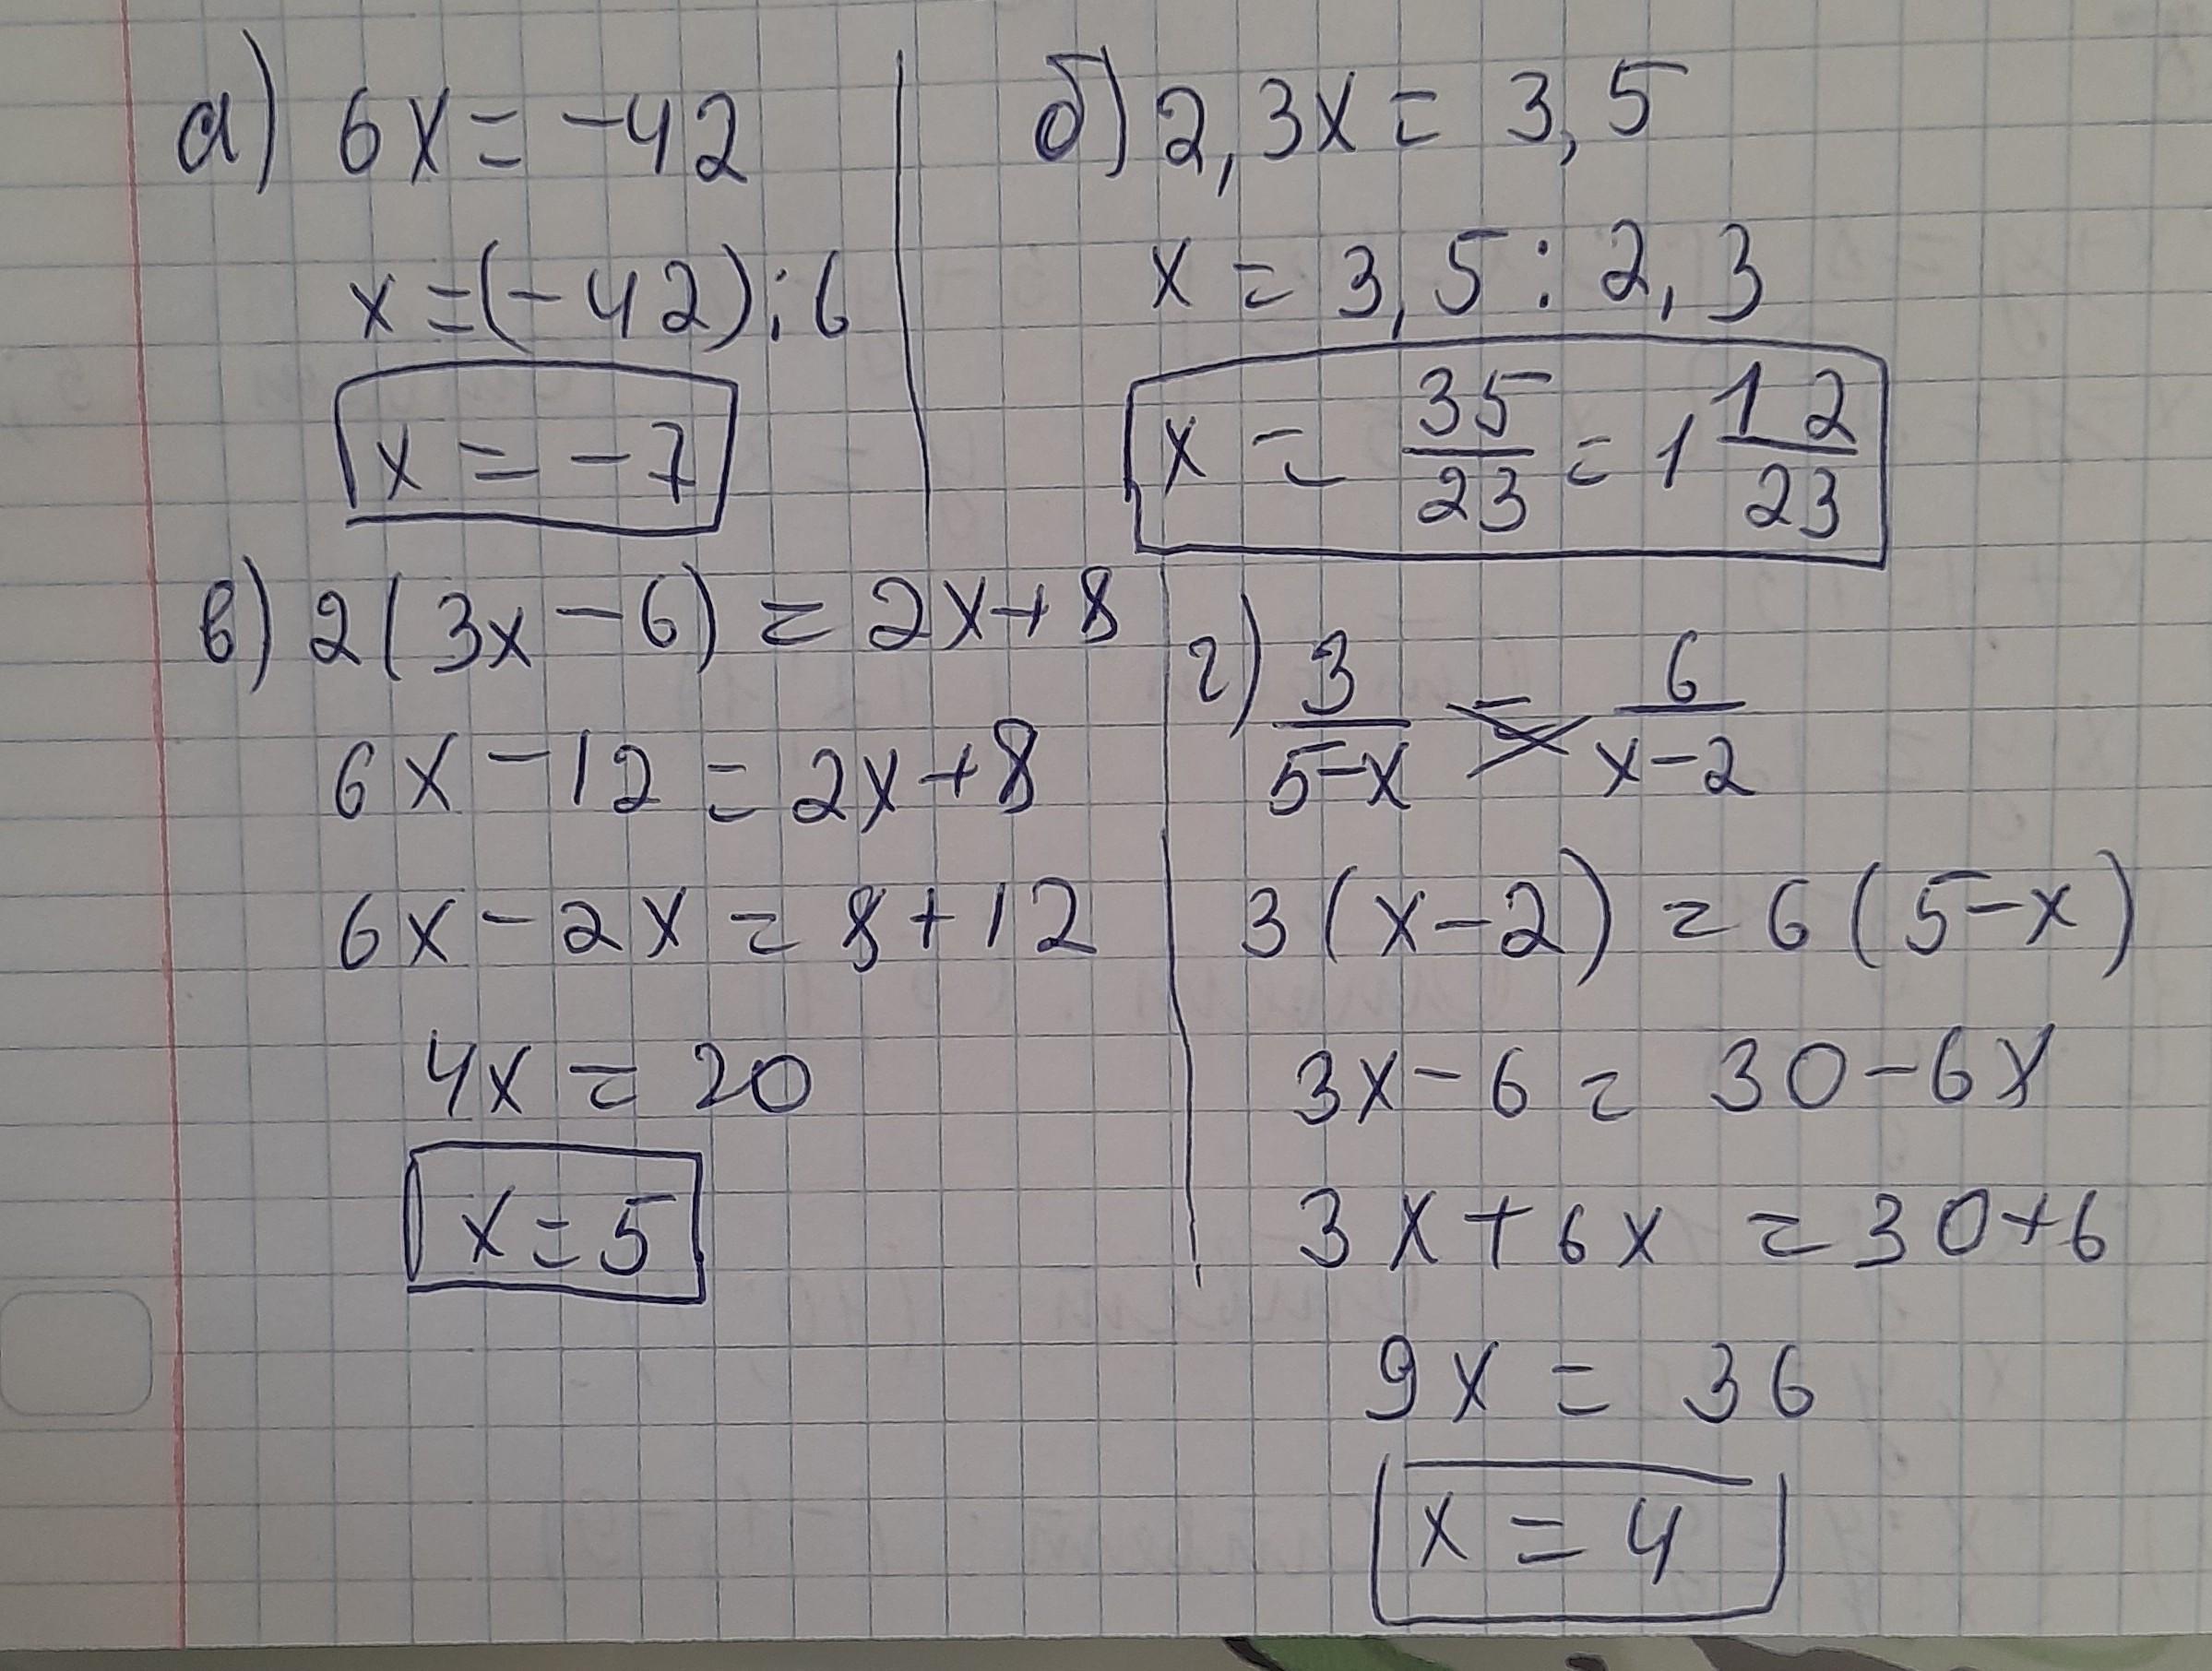 а) 6x = -42
x = (-42) : 6
x = -7
б) 2,3x = 3,5
x = 3,5 : 2,3
x = 35/23 = 1 12/23
в) 2(3x - 6) = 2x + 8
6x - 12 = 2x + 8
6x - 2x = 8 + 12
4x = 20
x = 5
г) 3/(5-x) = 6/(x-2)
3(x-2) = 6(5-x)
3x - 6 = 30 - 6x
3x + 6x = 30 + 6
9x = 36
x = 4